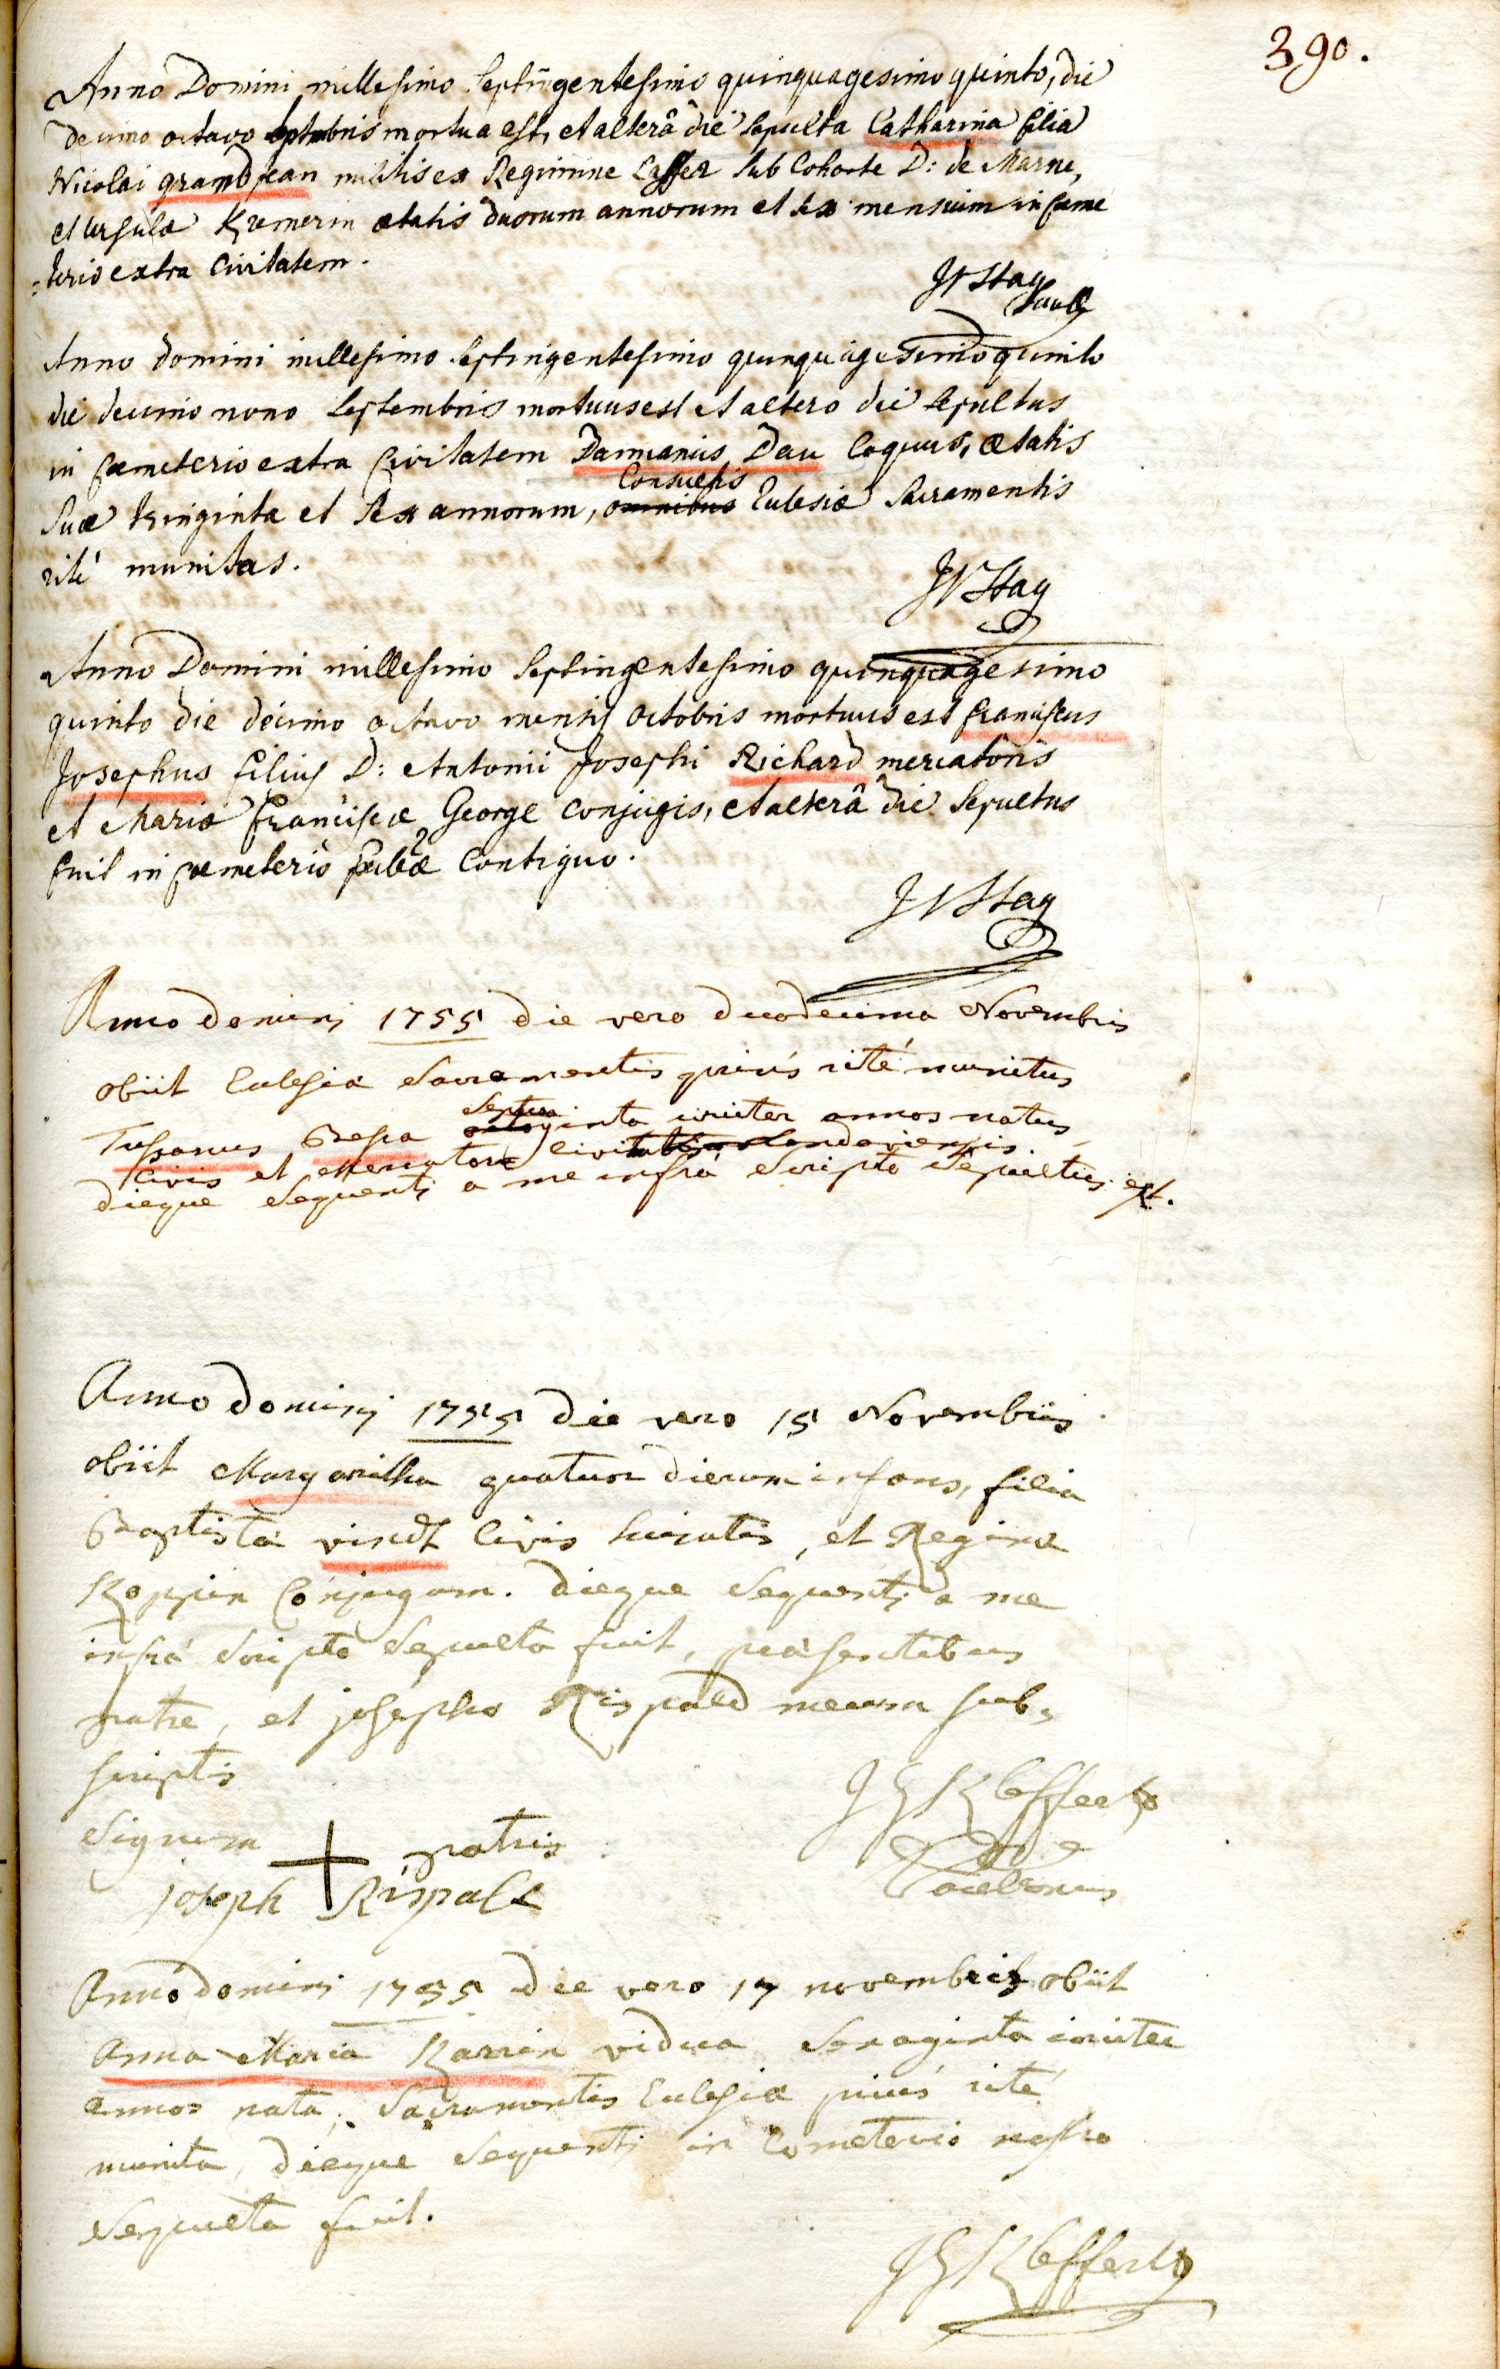 390.
Anno Domini millesimo septingentesimo quinquagesimo quinto, die
decimo octavo septembris mortua est, et alterâ die sepulta Catharina filia
Nicolai grandjean militis ex Regimine sub Cohorte D: de Marne,
et Ursulæ Kremerin ætatis duorum annorum et sex mensium in cæme
=terio extra Civitatem.
JNStag
Anno domini millesimo septingentesimo quinquagesimo quinto
die decimo nono septembris mortuus est et altero die sepultus
in cæmeterio extra Civitatem Dau Coquus, ætatis
Consuetis
suæ tringinta et sex annorum, omnibus Eclesiæ Sacramentis
rité munitus.
JNStag
Anno Domini millesimo septingentesimo quinquagesimo
quinto die decimo octavo mensis octobris mortuus est franciscus
Josephus filius D: Antonii Josephi Richard mercatoris
et Mariæ franciscæ George conjugis, et alterâ die sepultus
fuit in cæmeterio contiguo.
JNStag
Anno domini 1755 die vero duodecima Novembris
obiit Eclesiæ Sacramentis priús rité munitus
Tussanus Besa
septua
ginta circiter annos natus
Civis et Mercator Civitatis Landaviensis
dieque sequenti a me infrá scripto sepultus est.
Anno domini 1755 die vero 15 Novembris
obiit Margaritha quatuor dierum infans, filia
Baptistæ civis huiatis, et Reginæ
Koppin Conjugum. dieque sequenti a me
infrá scripto sepulta fuit, præsentibus
patre, et josepho Rispald mecum sub,
scriptis
Signum + patris
joseph Rispald
Anno domini 1755 die vero 17 novembris obiit
Anna Maria Karrin vidua circiter
annos nata, Sacramentis Eclesiæ priús rité
munita, dieque sequenti in Cometerio nostro
sepulta fuit.